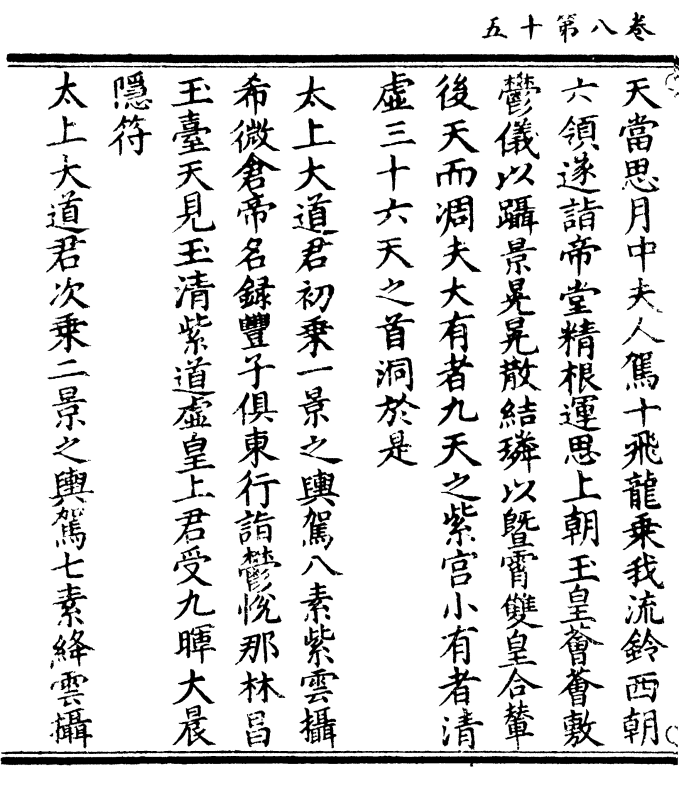 卷八第十五
天當思月中夫人駕十飛龍乗我流鈴西朝
六領遂詣帝堂精根運思上朝玉皇薈薈敷
鬱儀以躡景晃晃散結璘以暨霄雙皇合輦
後天而凋夫大有者九天之紫宫小有者清
虛三十六天之首洞於是
太上大道君初乗一景之輿駕八素紫雲攝
希微倉帝名録豐子俱東行詣鬱悅那林昌
玉臺天見玉清紫道虛皇上君受九暉大晨
隱符
太上大道君次乗二景之輿駕七素絳雲攝